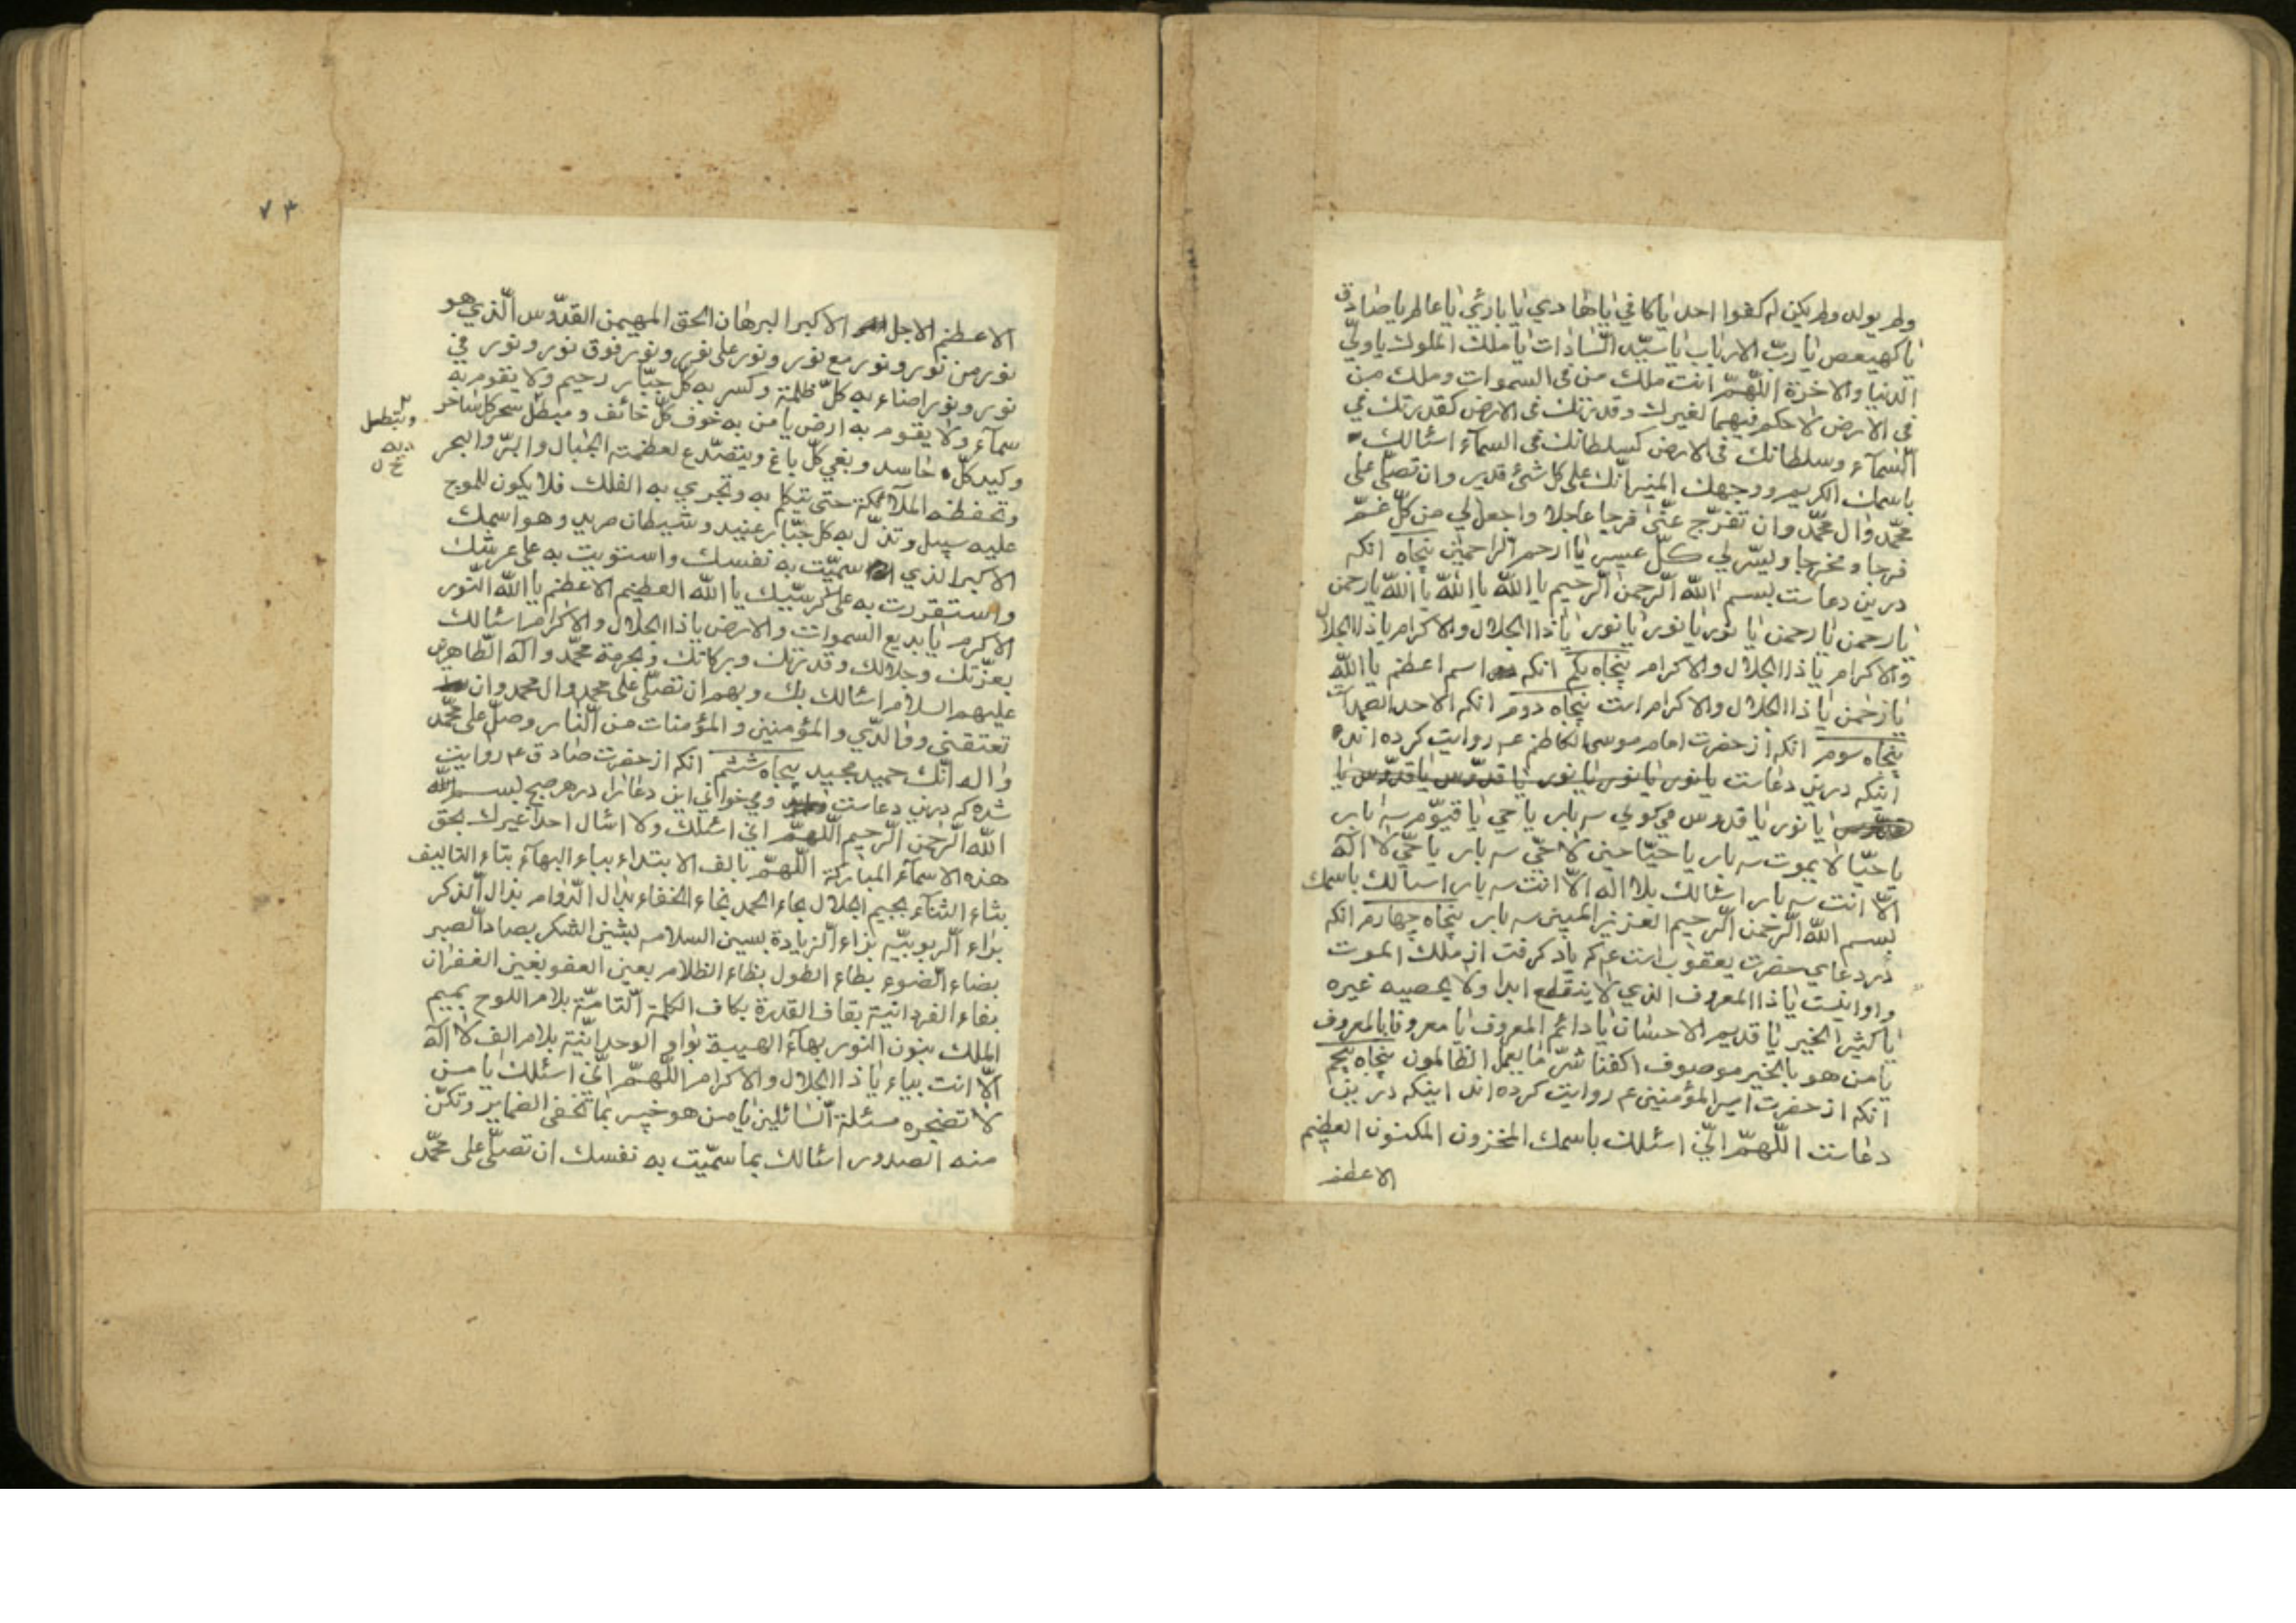 ولم يولد ولم يكن له كفوا احد يا كافي يا هادي يا بارئ يا عالم يا صادق
يا كهيعص يا ربّ الارباب يا سيّد السّادات يا ملك الملوك يا وليّ
الدنيا والاخرة اللّهمّ انت ملك من في السموات وملك من
في الارض لا حكم فيهما لغيرك وقدرتك في الارض كقدرتك في
السّمآء وسلطانك في الارض كسلطانك في السمآء اسئالك
باسمك الكريم ووجهك المنير انّك على كل شئ قدير وان تصلّي على
محمّد وال محمّد وان تفرّج عنّي فرجا عاجلا واجعل لي من كلّ غمّ
فرجا ومخرجا ويسّر لي كلّ عسير يا ارحم الراحمين پنجاه انكه
درين دعاست بسم اللّه الرّحمن الرّحيم يا اللّه يا اللّه يا اللّه يا رحمن
يا رحمن يا رحمن يا نور يا نور يا نور يا ذا الجلال والاكرام يا ذا الجلال
والاكرام يا ذا الجلال والاكرام پنجاه يكم انكه اسم اعظم يا اللّه
يا رحمن يا ذا الجلال والاكرام است پنجاه دوم انكه الاحد الصمد است
پنجاه سوم انكه از حضرت امام موسى الكاظم ع روايت كرده اند
اينكه درين دعاست يا نور يا نور يا نور يا قدّوس يا قدّوس يا
قدّوس يا نور يا قدوس مي كوئي سه بار يا حي يا قيّوم سه بار
يا حيّا لا يموت سه بار يا حيّا حين لا حيّ سه بار يا حيّ لا اله
الّا انت سه بار اسئالك بلا اله الّا انت سه بار اسالك باسمك
بسم اللّه الرّحمن الرّحيم العزيز المبين سه بار پنجاه چهارم انكه
در دعاي حضرت يعقوب است ع كه ياد كرفت از ملك الموت
واو اينست يا ذا المعروف الذي لا ينقطع ابدا ولا يحصيه غيره
يا كثير الخير يا قديم الاحسان يا دائم المعروف يا معروفا بالمعروف
يا من هو بالخير موصوف اكفنا شرّ ما يعمل الظالمون پنجاه پنجم
انكه از حضرت امير المؤمنين ع روايت كرده اند اينكه درين
دعاست اللّهمّ انّي اسئلك باسمك المخزون المكنون العظيم
الاعظم
٧٣
الاعظم الاجل الاكبر البرهان الحق المهيمن القدّوس الّذي هو
نور من نور ونور مع نور ونور على نور ونور فوق نور ونور في
نور ونور اضاء به كلّ ظلمة وكسر به كل جبّار رحيم ولا يقوم به
سمآء ولا يقوم به ارض يا من به خوف كلّ خائف و مبطل سحر كل ساحر
وكيد كلّ حاسد وبغي كلّ باغ ويتصدّع لعظمته الجبال والبرّ والبحر
وتبطل
به
خ ل
وتحفظه الملآئكة حتى تتكلم به وتجري به الفلك فلا يكون للموج
عليه سبيل وتذلّ به كل جبّار عنيد وشيطان مريد وهو اسمك
الاكبر الذي سميّت به نفسك واستويت به على عرشك
واستقررت به على كرسيّك يا اللّه العظيم الاعظم يا اللّه النّور
الاكرم يا بديع السموات والارض يا ذا الجلال والاكرام اسئالك
بعزّتك وجلالك وقدرتك وبركاتك وبحرمة محمّد واله الطّاهرين
عليهم السلام اسئالك بك وبهم ان تصلّي على محمد وال محمد وان
تعتقني ووالديّ والمؤمنين والمؤمنات من النّار وصلّ على محمّد
واله انّك حميد مجيد پنجاه ششم انكه از حضرت صادق ع روايت
شده كه درين دعاست ومي خواني اين دعا را در هر صبح بسم اللّه
اللّه الرّحمن الرّحيم اللّهمّ اني اسئلك ولا اسئال احدا غيرك بحق
هذه الاسمآء المباركة اللّهمّ بالف الابتداء بباء البهآء بتاء التاليف
بثاء الثنآء بجيم الجلال بحاء الحمد بخاء الخفاء بدال الدّوام بذال الّذكر
براء الّربوبيّه بزاء الّزيادة بسين السلام بشين الشكر بصاد الصبر
بضاء الضوء بطاء الطول بظاء الظلام بعين العفو بغين الغفران
بفاء الفردانية بقاف القدرة بكاف الكلمة التّامّة بلام اللوح بميم
الملك بنون النور بهآء الهيبة بواو الوحدانيّة بلام الف لا اله
الّا انت بياء يا ذا الجلال والاكرام اللّهمّ انّي اسئلك يا من
لا تضجره مسئلة السّائلين يا من هو خبير بما تخفى الضماير وتكنّ
منه الصدور اسئالك بما سمّيت به نفسك ان تصلّي على محمّد